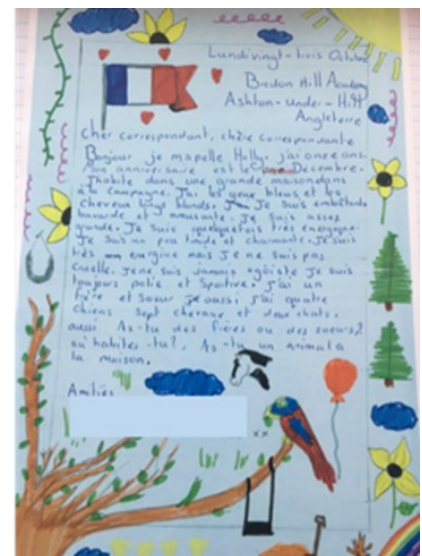 Lundi vingt-trois Octobre
Bredon Hill Academy
Ashton-under-Hill
Angleterre
Cher correspondant, chère correspondante
Bonjour je mapelle Holly. j'ai onze ans.
Mon anniversaire est le Décembre.
J'habite dans une grande maison dans
à la Campagne. J'ai les yeux bleus et les
cheveux longs blonds. Je Suis embêtante
bavarde et amusante. Je suis assez
grande. Je suis quelquefois très énergique.
Je suis un peu timide et charmante. Je suis
très energine mais Je ne suis pas
Cruelle. Je ne suis Jamais egöiste Je suis
toujours polie et Sportive. J'ai un
frère et soeur Je aussi j'ai quatre
Chiens Sept chevaux et deux chats.
aussi As-tu des frères ou des soeurs?
où habites-tu?. As-tu un animal à
la maison.
Amitiés
xx